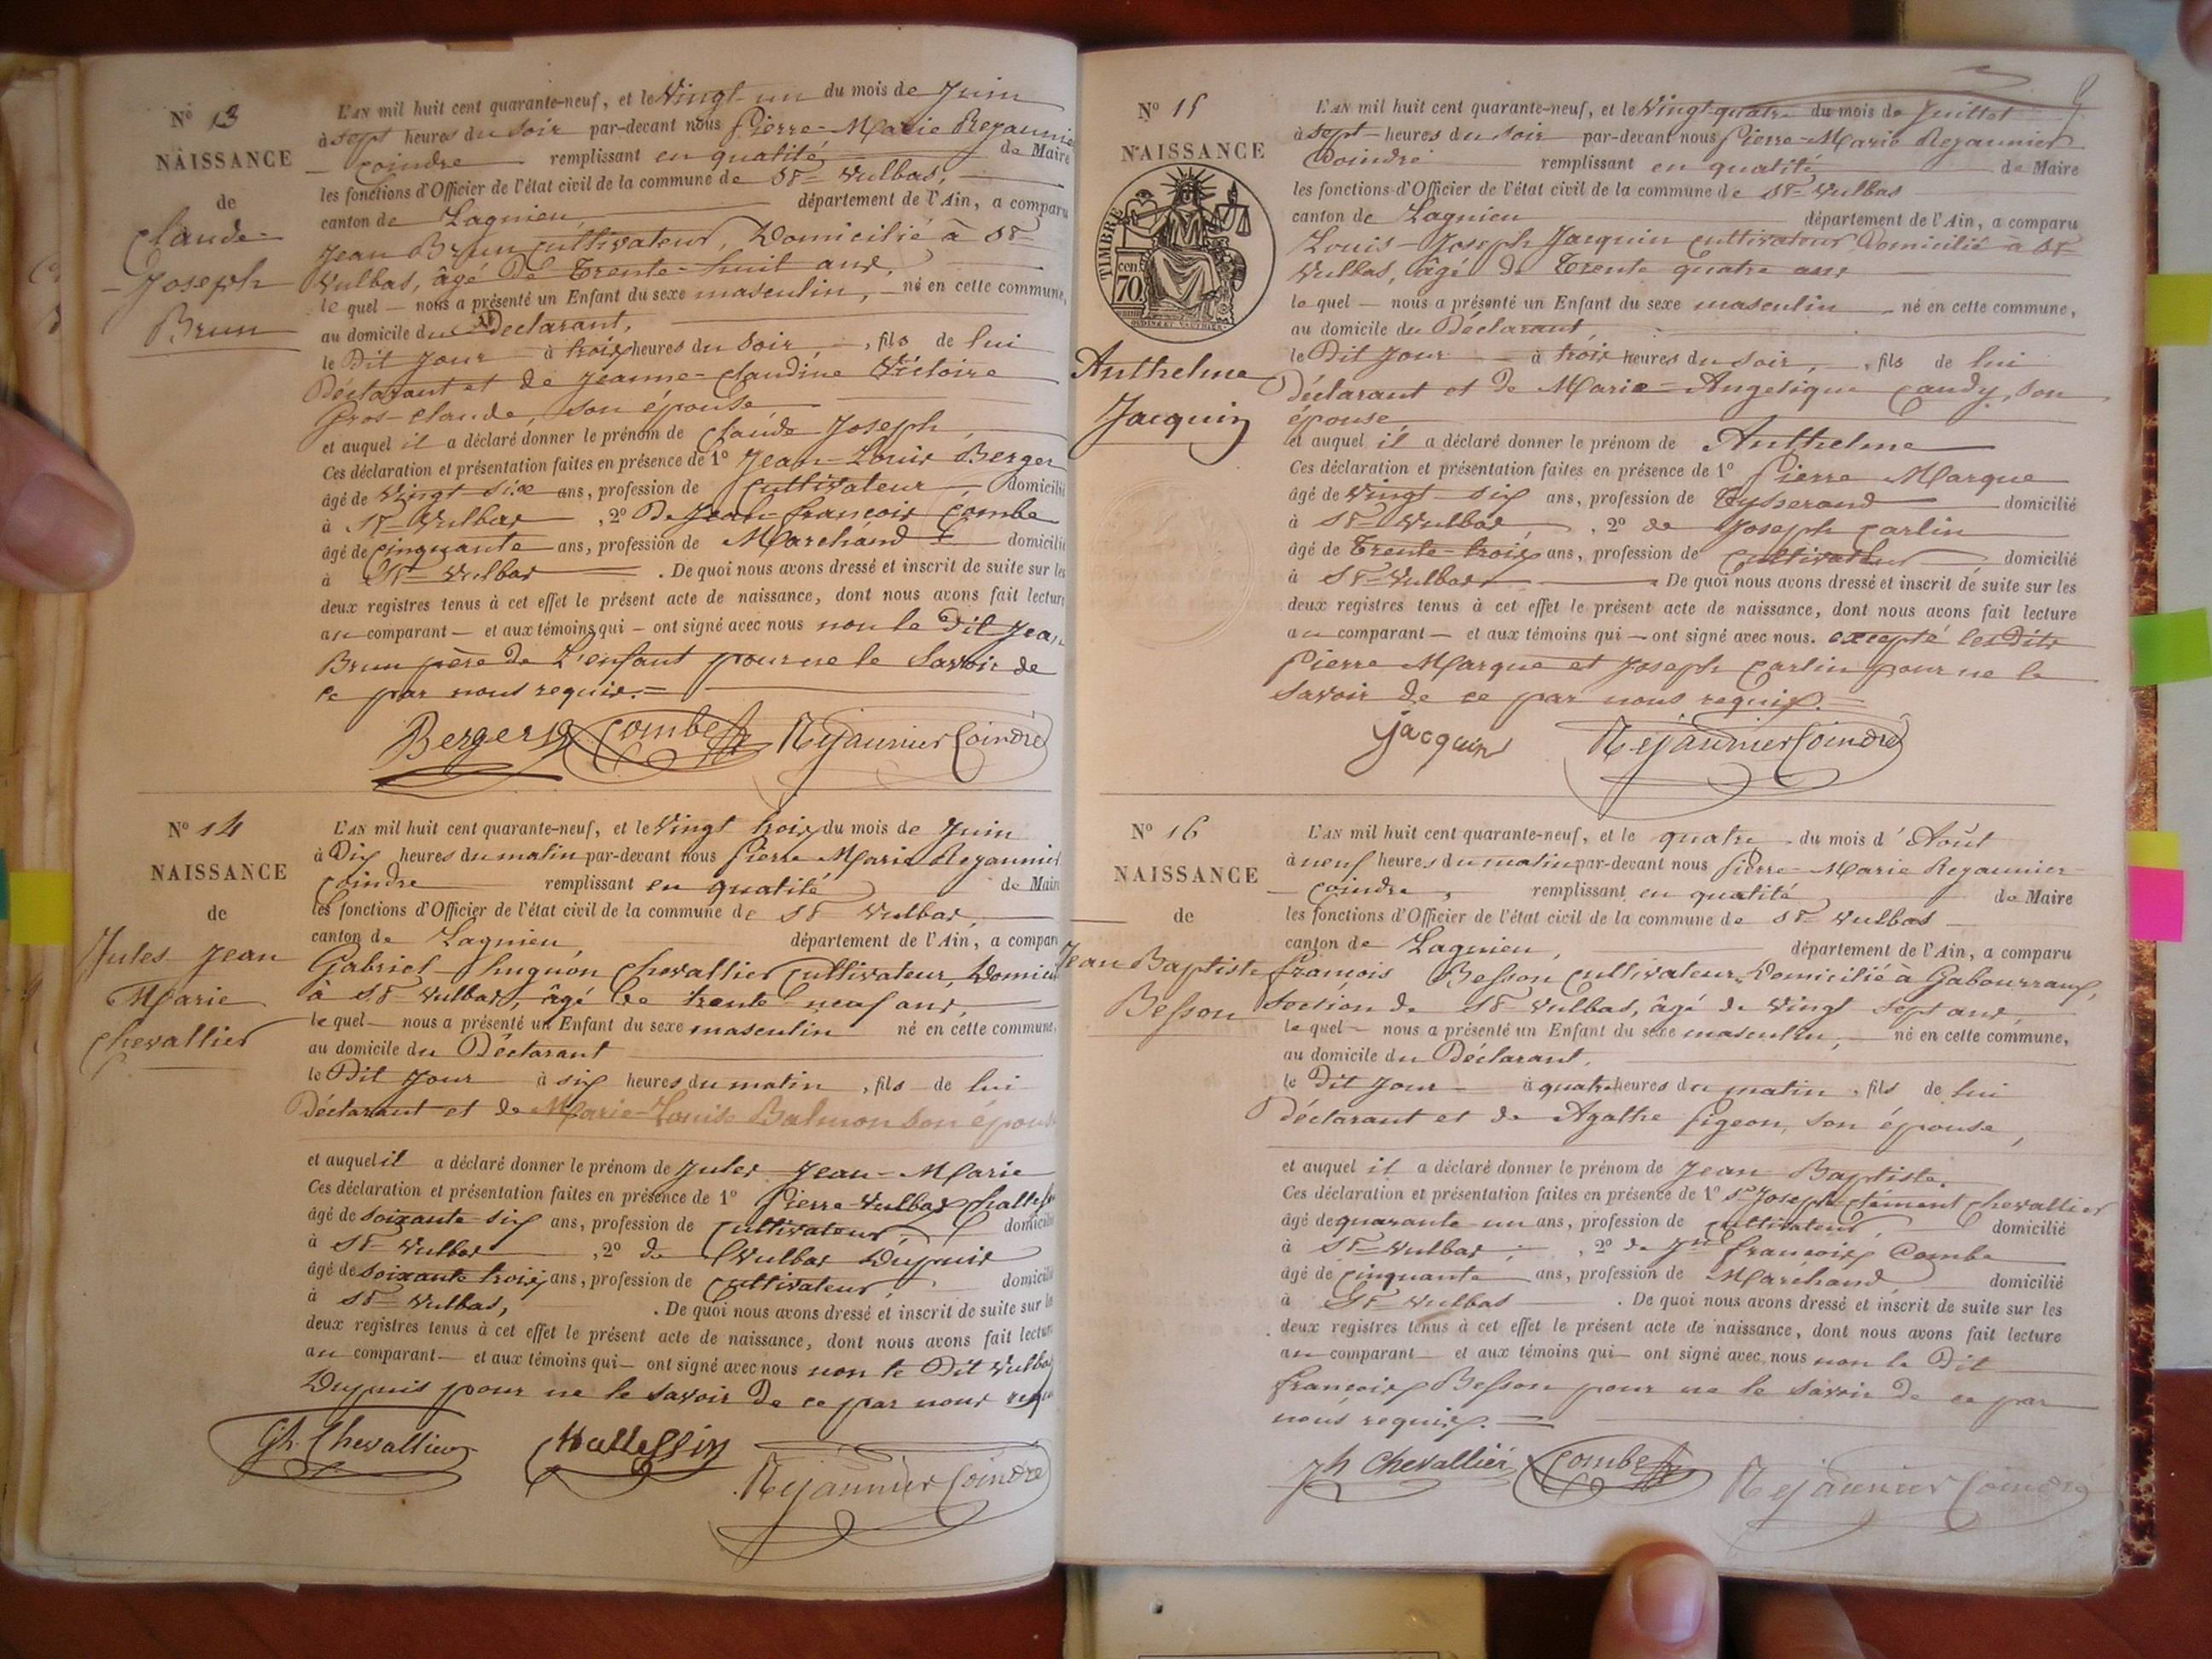 Nº 13
NAISSANCE
de
Claude-
Joseph
Brun
L'AN mil huit cent quarante-neuf, et le Vingt-un du mois de Juin
à sept heures du soir par-devant nous Pierre-Marie Rejaunier
Coindre remplissant en qualité de Maire
les fonctions d'Officier de l'état civil de la commune de St-Vulbas,
canton de Lagnieu, département de l'Ain, a comparu
Jean Brun cultivateur, Domicilié à St-
Vulbas, âgé de Trente-huit ans,
le quel nous a présenté un Enfant du sexe masculin, né en cette commune,
au domicile du Déclarant,
le Dit Jour à trois heures du soir, fils de lui
Déclarant et de Jeanne-Claudine Victoire
Gros-Claude, son épouse
et auquel il a déclaré donner le prénom de Claude Joseph,
Ces déclaration et présentation faites en présence de 1º Jean-Louis Berger
âgé de Vingt-six ans, profession de Cultivateur, domicilié
à St-Vulbas, 2º De Jean-François Combe
âgé de Cinquante ans, profession de Maréchand domicilié
à St-Vulbas. De quoi nous avons dressé et inscrit de suite sur les
deux registres tenus à cet effet le présent acte de naissance, dont nous avons fait lecture
au comparant et aux témoins qui ont signé avec nous non le Dit Jean
Brun père de L'enfant pour ne le Savoir de
ce par nous requis.=
Berger Combe Rejaunier Coindre
Nº 14
NAISSANCE
de
Jules Jean
Marie
Chevallier
L'AN mil huit cent quarante-neuf, et le Vingt trois du mois de Juin
à Dix heures du matin par-devant nous Pierre Marie Rejaunier
Coindre remplissant en qualité de Maire
les fonctions d'Officier de l'état civil de la commune de St-Vulbas,
canton de Lagnieu, département de l'Ain, a comparu
Gabriel-Huguon Chevallier Cultivateur, Domicilié
à St-Vulbas, âgé de trente neuf ans,
le quel nous a présenté un Enfant du sexe masculin né en cette commune,
au domicile du Déclarant
le Dit Jour à six heures du matin, fils de lui
Déclarant et de Marie-Louise Balmon son épouse
et auquel il a déclaré donner le prénom de Jules Jean-Marie
Ces déclaration et présentation faites en présence de 1º Pierre-Vulbas
âgé de soixante-six ans, profession de Cultivateur, domicilié
à St-Vulbas, 2º de Vulbas Dupuis
âgé de soixante trois ans, profession de Cultivateur, domicilié
à St-Vulbas,. De quoi nous avons dressé et inscrit de suite sur les
deux registres tenus à cet effet le présent acte de naissance, dont nous avons fait lecture
au comparant et aux témoins qui ont signé avec nous non le Dit Vulbas
Dupuis pour ne le savoir De ce par nous requis
Gh. Chevallier Rejaunier Coindre
Nº 15
NAISSANCE
TIMBRE
cen
70
Anthelme
Jacquin
L'AN mil huit cent quarante-neuf, et le Vingt-quatre du mois de Juillet
à sept heures du soir par-devant nous Pierre-Marie Rejaunier
Coindre remplissant en qualité de Maire
les fonctions d'Officier de l'état civil de la commune de St-Vulbas
canton de Lagnieu département de l'Ain, a comparu
Louis-Joseph Jacquin cultivateur Domicilié à St-
Vulbas, âgé de Trente quatre ans
le quel nous a présenté un Enfant du sexe masculin né en cette commune,
au domicile du Déclarant,
le Dit Jour à trois heures du soir, fils de lui
Déclarant et de Marie-Angelique Candy, son
épouse
et auquel il a déclaré donner le prénom de Anthelme
Ces déclaration et présentation faites en présence de 1º Pierre Marque
âgé de Vingt-six ans, profession de Tysserand domicilié
à St-Vulbas, 2º de Joseph Carlin
âgé de Trente-trois ans, profession de Cultivateur, domicilié
à St-Vulbas. De quoi nous avons dressé et inscrit de suite sur les
deux registres tenus à cet effet le présent acte de naissance, dont nous avons fait lecture
au comparant et aux témoins qui ont signé avec nous. excepté lesdits
Pierre Marque et Joseph Carlin pour ne le
savoir de ce par nous requis.=
Jacquin Rejaunier Coindre
Nº 16
NAISSANCE
de
Jean Baptiste
Besson
L'AN mil huit cent quarante-neuf, et le quatre du mois d'Août
à neuf heures du matin par-devant nous Pierre-Marie Rejaunier-
Coindre, remplissant en qualité de Maire
les fonctions d'Officier de l'état civil de la commune de St-Vulbas
canton de Lagnieu, département de l'Ain, a comparu
François Besson Cultivateur Domicilié à Gabourraux,
Section de St-Vulbas, âgé de Vingt sept ans,
le quel nous a présenté un Enfant du sexe masculin, né en cette commune,
au domicile du Déclarant,
le Dit Jour à quatre heures du matin, fils de lui
Déclarant et de Agathe Pigeon, son épouse,
et auquel il a déclaré donner le prénom de Jean Baptiste.
Ces déclaration et présentation faites en présence de 1º Sr Joseph-Clément Chevallier
âgé de quarante-un ans, profession de Cultivateur, domicilié
à St-Vulbas, 2º de Jn François Combe
âgé de Cinquante ans, profession de Maréchand domicilié
à St-Vulbas. De quoi nous avons dressé et inscrit de suite sur les
deux registres tenus à cet effet le présent acte de naissance, dont nous avons fait lecture
au comparant et aux témoins qui ont signé avec nous non le Dit
François Besson pour ne le savoir de ce par
nous requis.=
Jh Chevallier Combe Rejaunier Coindre